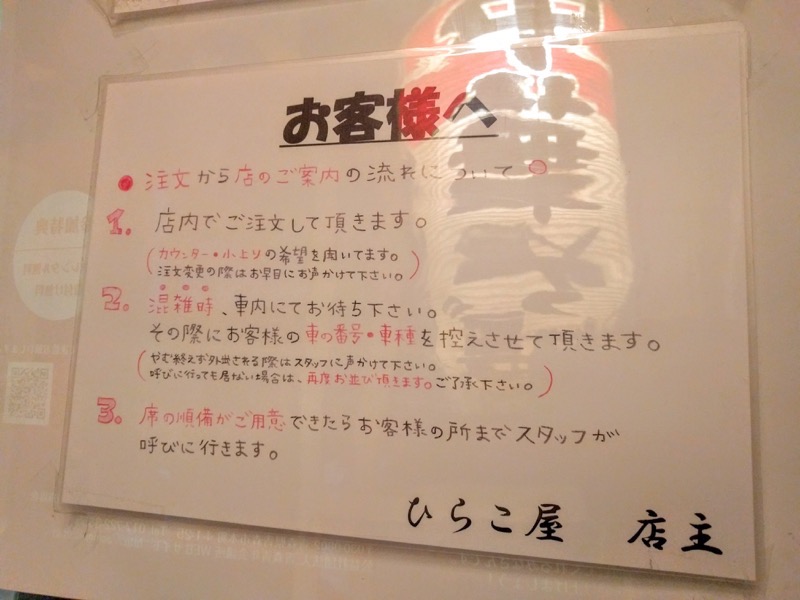 お客様へ
注文から店のご案内の流れについて
1. 店内でご注文して頂きます。
(カウンター・小上りの希望を聞いてます。
注文変更の際はお早目にお声かけて下さい。)
2. 混雑時、車内にてお待ち下さい。
その際にお客様の車の番号・車種を控えさせて頂きます。
(やむ終えず外出される際はスタッフに声かけて下さい。
呼びに行っても居ない場合は、再度お並び頂きます。ご了承下さい。)
3. 席の順備がご用意できたらお客様の所までスタッフが
呼びに行きます。
ひらこ屋 店主